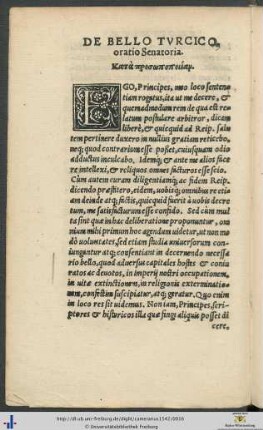 DE BELLO TVRCICO,
oratio Senatoria.
Κατὰ προσωποποιίαμ.
EGO, Principes, meo loco senten-
tiam rogatus, ita ut me decere, &
quemadmodum rem de qua est re
latum postulare arbitror, dicam
liberè, & quicquid ad Reip. salu
tem pertinere duxero in nullius gratiam reticebo,
neq; quod contrarium esse posset, cuiusquam odio
adductus inculcabo. Idemq; & ante me alios fecis
se intellexi, & reliquos omnes facturos esse scio.
Cum autem curam diligentiamq; ac fidem Reip.
dicendo præstitero, eidem, uobisq; omnibus re etiam
iam deinde atq; factis, quicquid fuerit à uobis decre
tum, me satisfacturum esse confido. Sed cum mul
ta sint quæ in hac deliberatione proponuntur, om
nium mihi primum hoc agendum uidetur, ut non mo
dò uoluntates, sed etiam studia uniuersorum con-
iungantur atq; consentiant in decernendo necessa
rio bello, quod aduersus capitales hostes & coniu
ratos ac deuotos, in imperij nostri occupationem,
in uitæ extinctionem, in religionis exterminationem
confestim suscipiatur, atq; geratur. Quo enim
in loco res sit uidemus. Non iam, Principes, scri-
ptores & historicos illa quæ fingi aliquis posset di
cere,
http://dl.ub.uni-freiburg.de/diglit/camerarius1542/0006
© Universitätsbibliothek Freiburg